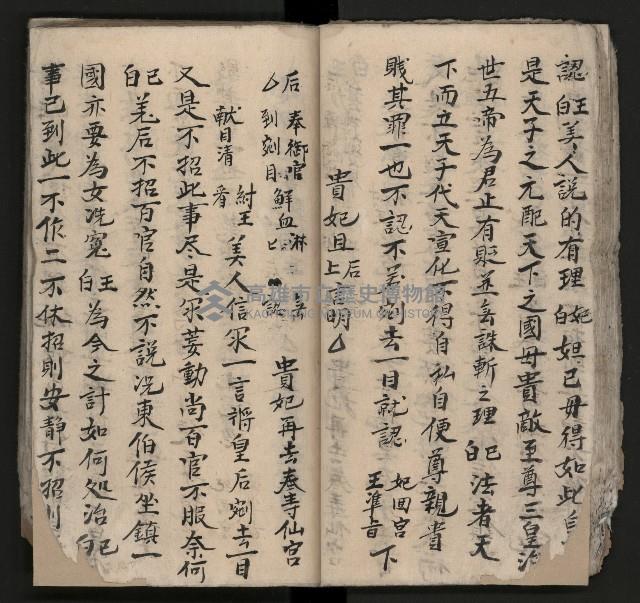 認 王白 美人說的有理 妃白 妲己毋得如此 白
是天子之元配天下之國母貴敵至尊三皇治
世五帝為君止有貶並無誅斬之理 己白 法者天
下而立天子代天宣化不得自私自便尊親貴
賎其罪一也不認不差剜去一目就認 妃回宮 王準旨 下
貴妃且上 后 明
后 奉御官 到剜目 鮮血淋 認 貴妃再去奉寺仙宮
献目清 看 紂王 美人信 一言將皇后剜去一目
又是不招此事尽是 妄動尚百官不服奈何
己白 羌后不招百官自然不說况東伯侯坐鎮一
國亦要為女洗寃 王白 為今之計如何処治 己白
事已到此一不作二不休招則安静不招則
高雄市立歷史博物館
KAOHSIUNG MUSEUM OF HISTORY